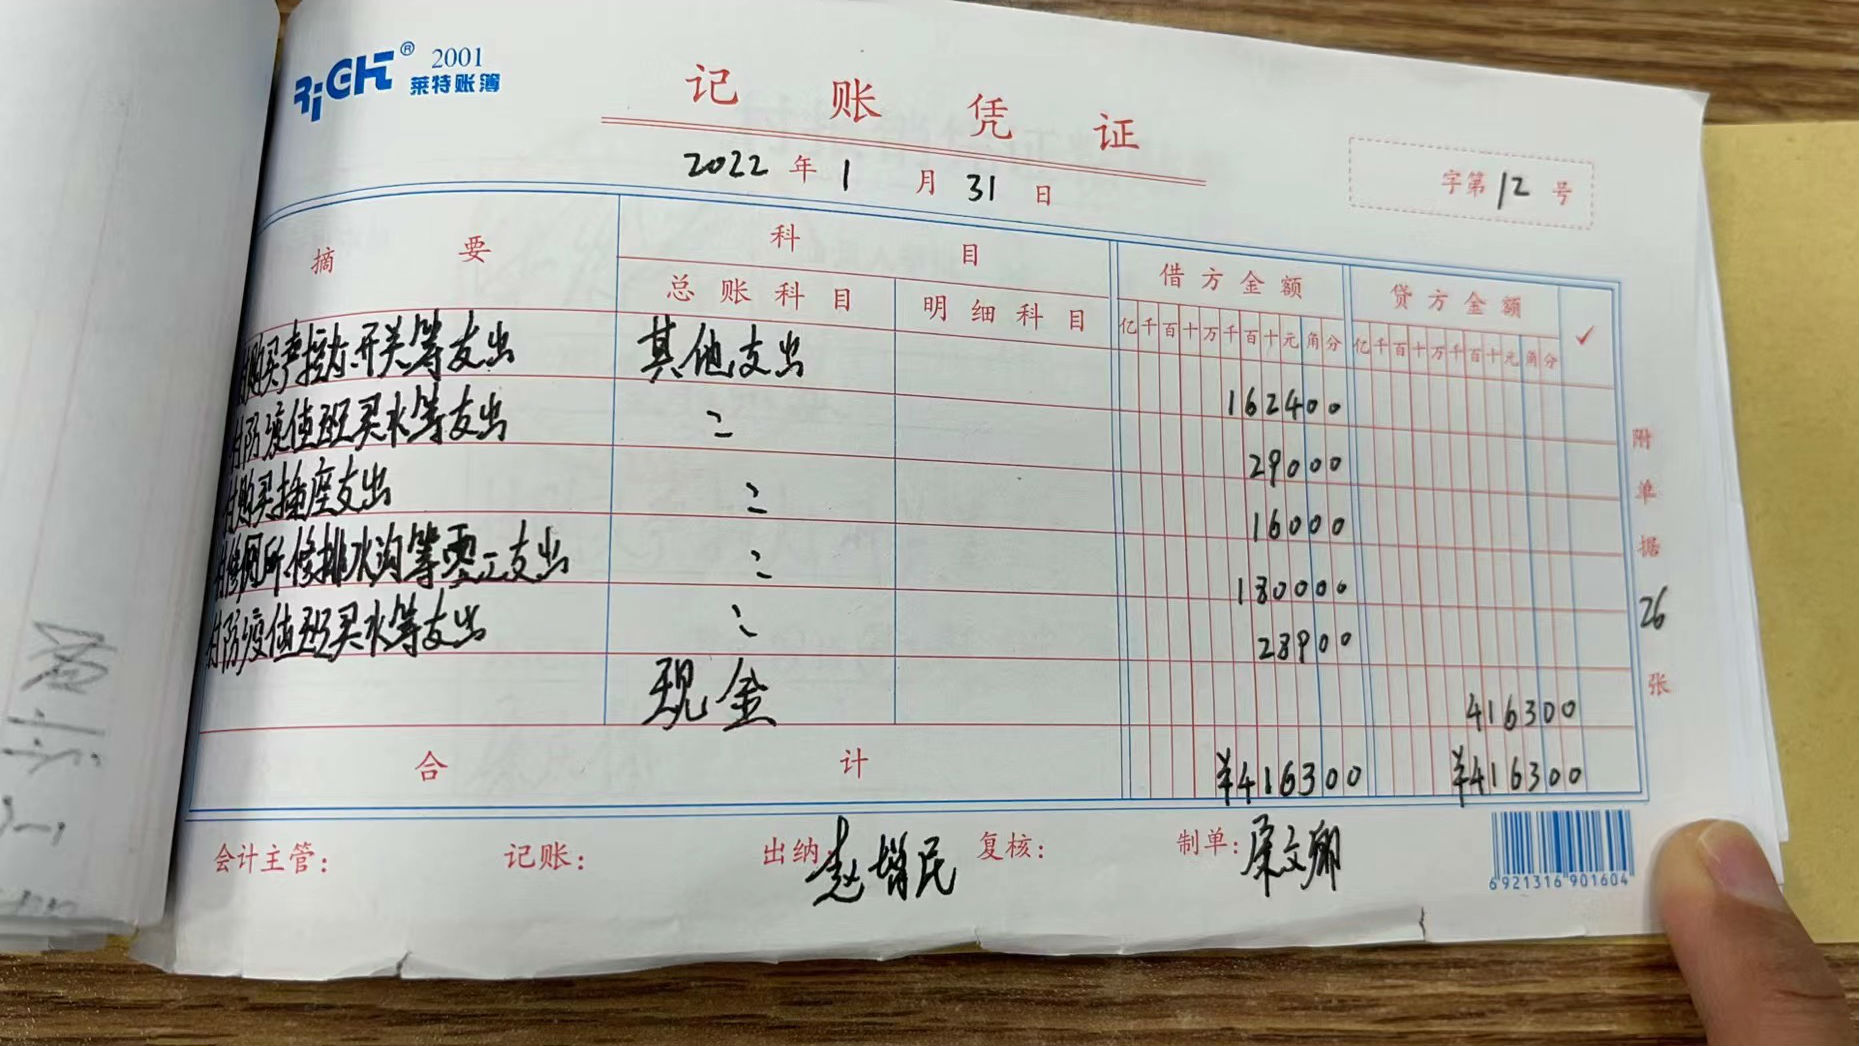 RiGHT® 2001
莱特账簿
记账凭证
2022年1月31日
字第12号
摘要 科目 借方金额 贷方金额 ✓
总账科目 明细科目 亿千百十万千百十元角分 亿千百十万千百十元角分
村购买声控灯.开关等支出 其他支出 162400
村防疫值班买水等支出 〃 29000
村购买插座支出 〃 16000
村修厕所.修排水沟等零工支出 〃 180000
村防疫值班买水等支出 〃 28900
现金 416300
合计 ¥416300 ¥416300
附单据26张
会计主管: 记账: 出纳:赵增民 复核: 制单:
6921316901604